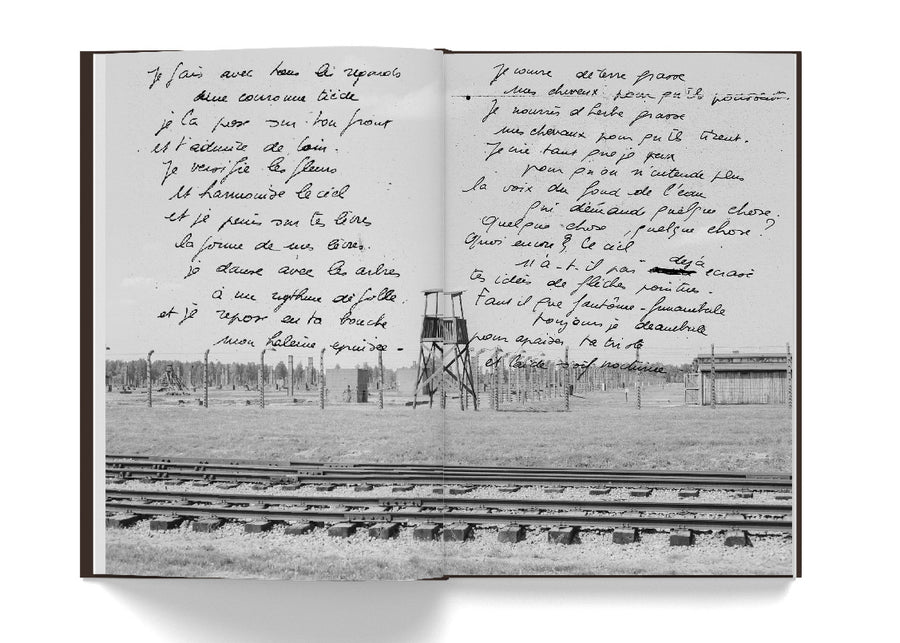 Je fais avec tous les regards
une couronne tiède
je la pose sur ton front
et t'admire de loin.
Je versifie les fleurs
et harmonise le ciel
et je peins sur tes lèvres
la forme de mes lèvres.
je danse avec les arbres
à un rythme de folle.
et je repose en ta bouche
mon haleine épuisée -
Je couvre de terre grasse
mes cheveux pour qu'ils poussent.
Je nourris d'herbe grasse
mes chevaux pour qu'ils tirent.
Je crie tant que je peux
pour qu'on n'entende plus
la voix du fond de l'eau
qui demande quelque chose.
Quelque chose, quelque chose ?
Quoi encore ? Ce ciel
n'a-t-il pas déjà écrasé
tes idées de flèches pointues.
Faut il que fantôme-funambule
toujours je déambule
pour apaiser ta triste
et laide soif nocturne